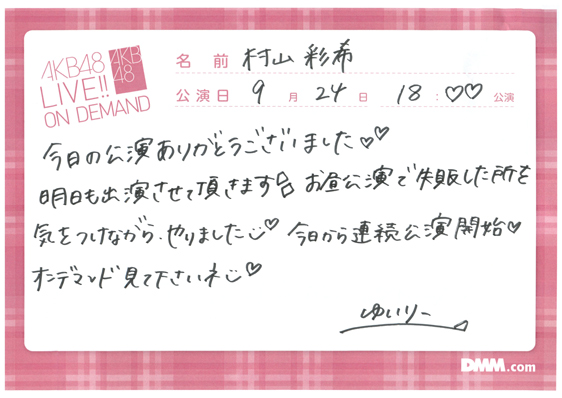 AKB48
LIVE!!
ON DEMAND
AKB
48
名前 村山彩希
公演日 9月24日 18:♡♡公演
今日の公演ありがとうございました♡♡
明日も出演させて頂きます お昼公演で失敗した所を
気をつけながら、やりました♡ 今日から連続公演開始♡
オンデマンド見て下さいネ♡
ゆいりー
DMM.com